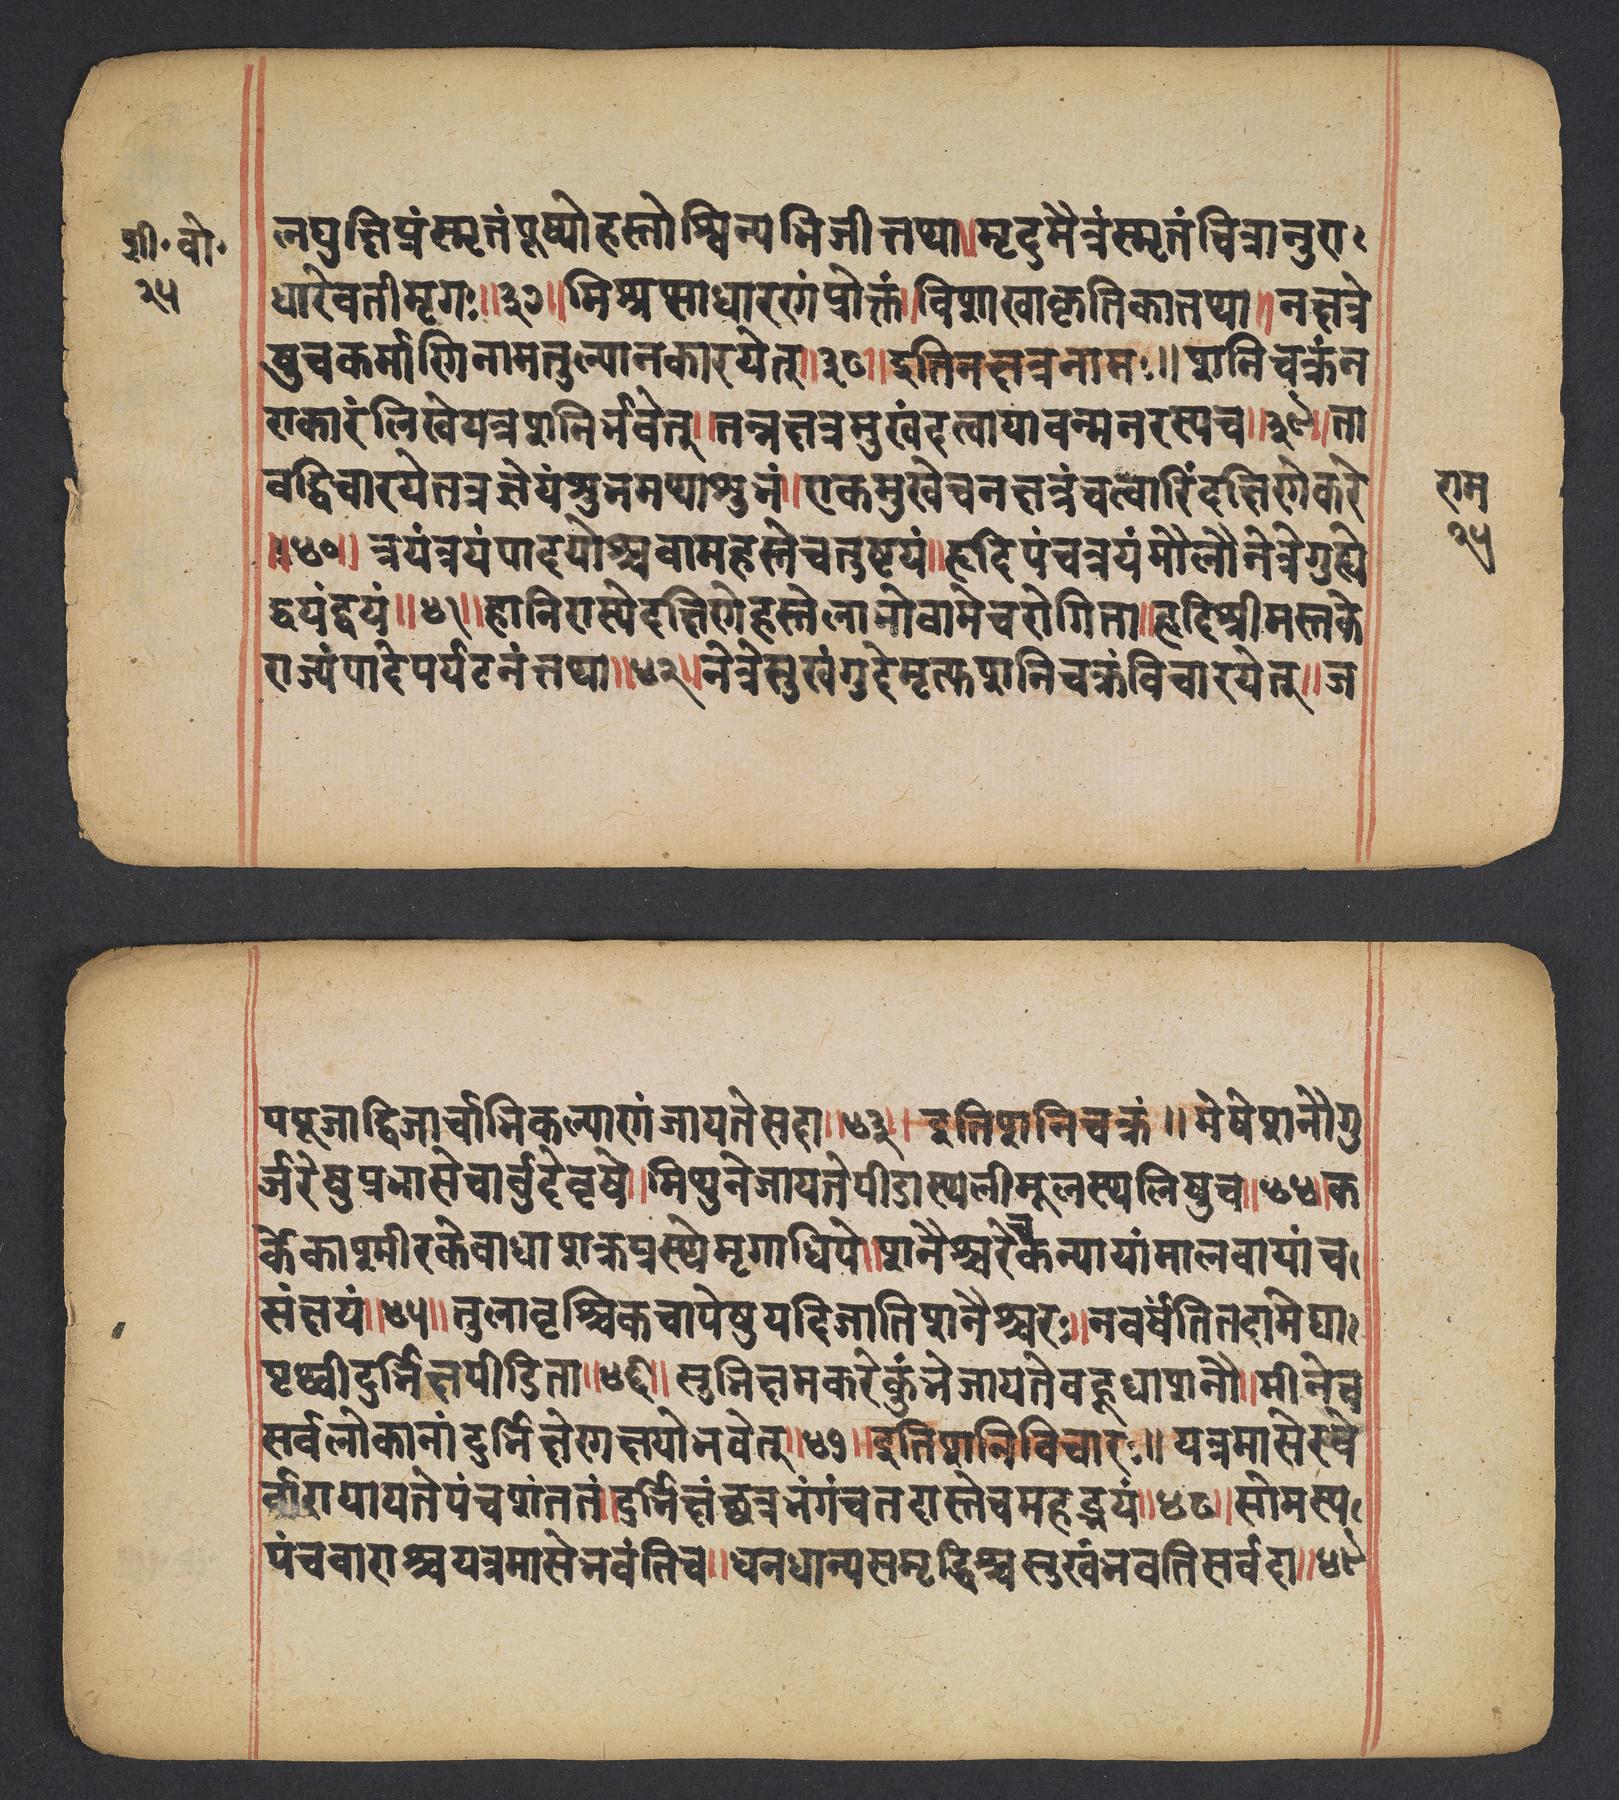 शी॰ वो॰
२५
लघुक्षिप्रंस्मृतंपूष्योहस्तोश्विन्यभिजीत्तथा॥मृदुमैत्रंस्मृतंचित्रानुरा
धारेवतीमृगः॥३७॥मिश्रसाधारणंप्रोक्तं।विशाखाकृतिकातथा॥नक्षत्रे
षुचकर्माणिनामतुल्यानकारयेत्॥३८॥इतिनक्षत्रनामः॥शनिचक्रंन
राकारंलिखेयत्रशनिर्भवेत्॥तन्नक्षत्रमुखंदत्वायावन्मनरस्यच॥३९॥ता
वद्विचारयेतत्रज्ञेयंशुभमथाशुभं॥एकमुखेचनक्षत्रंचत्वारिंदक्षिणेकरे
॥४०॥त्रयंत्रयंपादयोश्चवामहस्तेचतुष्टयं॥हृदिपंचत्रयंमौलौनेत्रेगुह्ये
द्वयंद्वयं॥४१॥हानिरास्येदक्षिणेहस्तेलाभोवामेचरोगिता॥हृदिश्रीमस्तके
राज्यंपादेपर्यटनंतथा॥४२॥नेत्रेसुखंगुदेमृत्युशनिचक्रंविचारयेत्॥ज
राम
२५
पपूजाद्विजार्चाभिकल्याणंजायतेसदा॥४३॥इतिशनिचक्रं॥मेषेशनौगु
र्जरेषुप्रभासेचार्वुदेवृषे॥मिथुनेजायतेपीडास्थलीमूलस्थलिषुच॥४४॥क
र्केकाश्मीरकेवाधाशक्रप्रस्थेमृगाधिपे॥शनैश्चरेचकन्यायांमालवायांच
संक्षयं॥४५॥तुलावृश्चिकचापेषुयदिजातिशनैश्चरः॥नवर्षंतितदामेघा
पृथ्वीदुर्भिक्षपीडिता॥४६॥सुभिक्षमकरेकुंभेजायतेवहूधाशनौ॥मीनेच
सर्वलोकानांदुर्भिक्षेणक्षयोभवेत्॥४७॥इतिशनिविचारः॥यत्रमासेरवे
र्वाराजायतेपंचशंततं॥दुर्भिक्षंछत्रभंगंचतदास्तेचमहद्भयं॥४८॥सोमस्य
पंचवाराश्चयत्रमासेभवंतिच॥धनधान्यसमृद्धिश्चसुखंभवतिसर्वदा॥४९